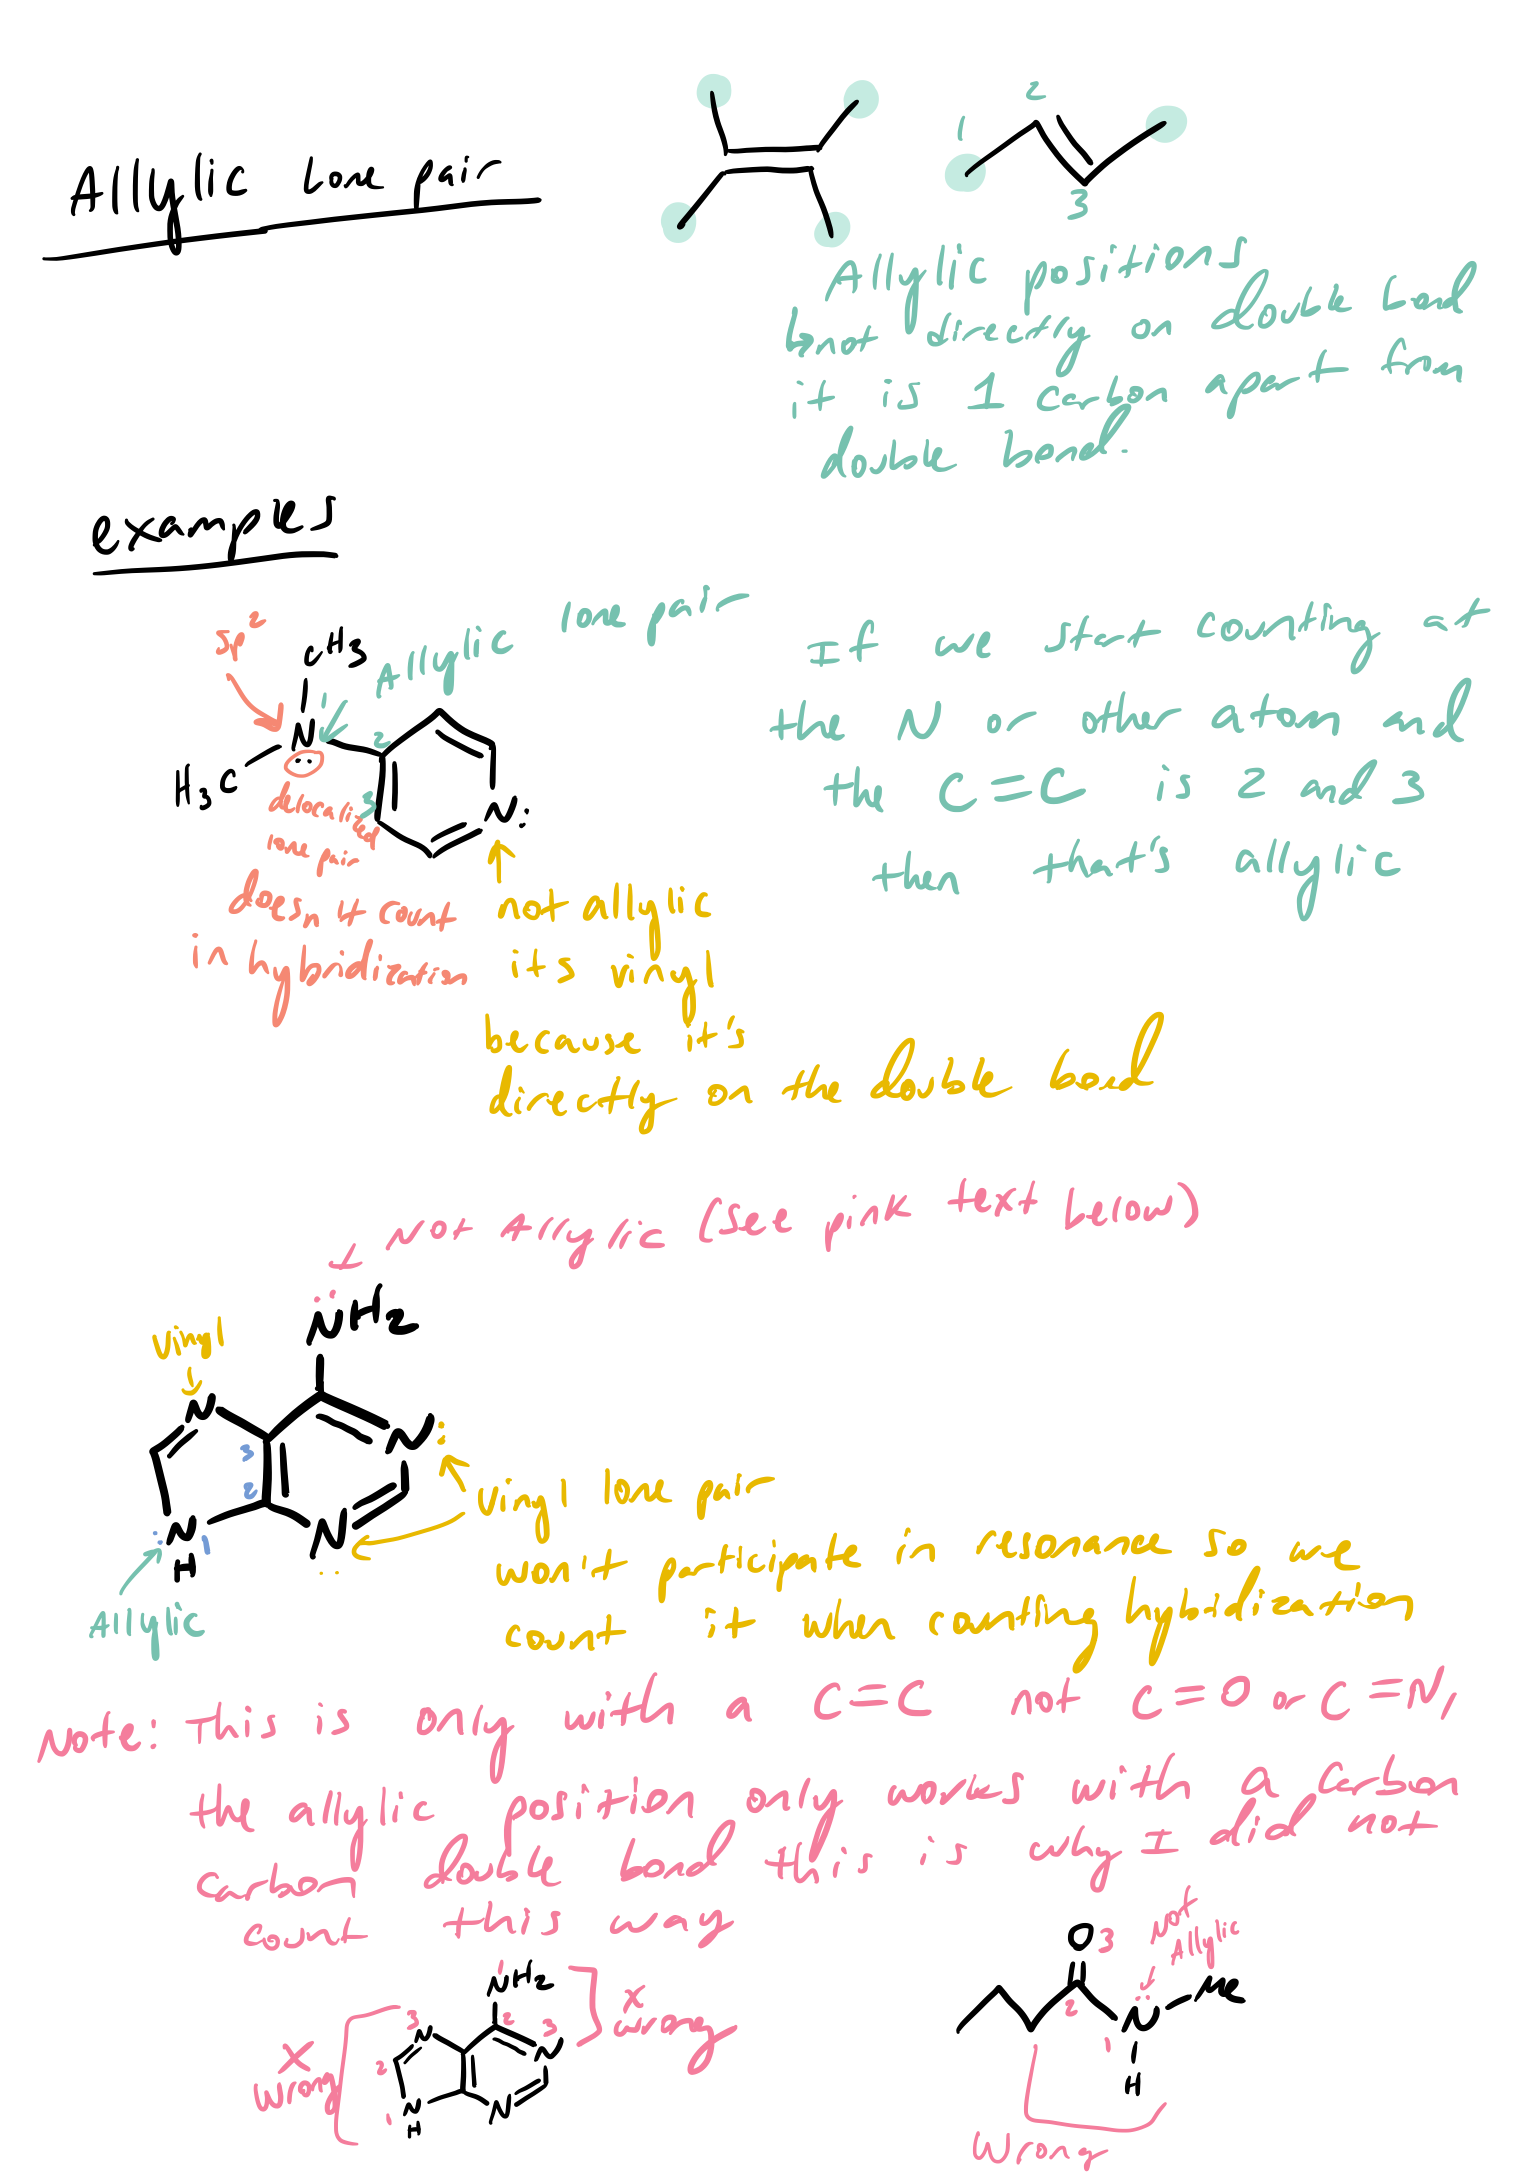 Allylic lone pair
1
2
3
Allylic positions
↳not directly on double bond
it is 1 carbon apart from
double bond.
examples
sp2
CH3
Allylic lone pair
N
1
2
3
H3C
N:
delocalized
lone pair
doesn't count
in hybridization
If we start counting at
the N or other atom and
the C=C is 2 and 3
then that's allylic
not allylic
its vinyl
because it's
directly on the double bond
Not Allylic (see pink text below)
NH2
Vinyl
N
N:
3
2
N
H
1
N
Allylic
Vinyl lone pair
won't participate in resonance so we
count it when counting hybridization
Note: This is only with a C=C not C=O or C=N,
the allylic position only works with a carbon
carbon double bond this is why I did not
count this way
1
NH2
x
wrong
3
N
2
3
N
x
wrong
2
1
N
H
N
O
3
Not
Allylic
2
1
N
Me
H
Wrong